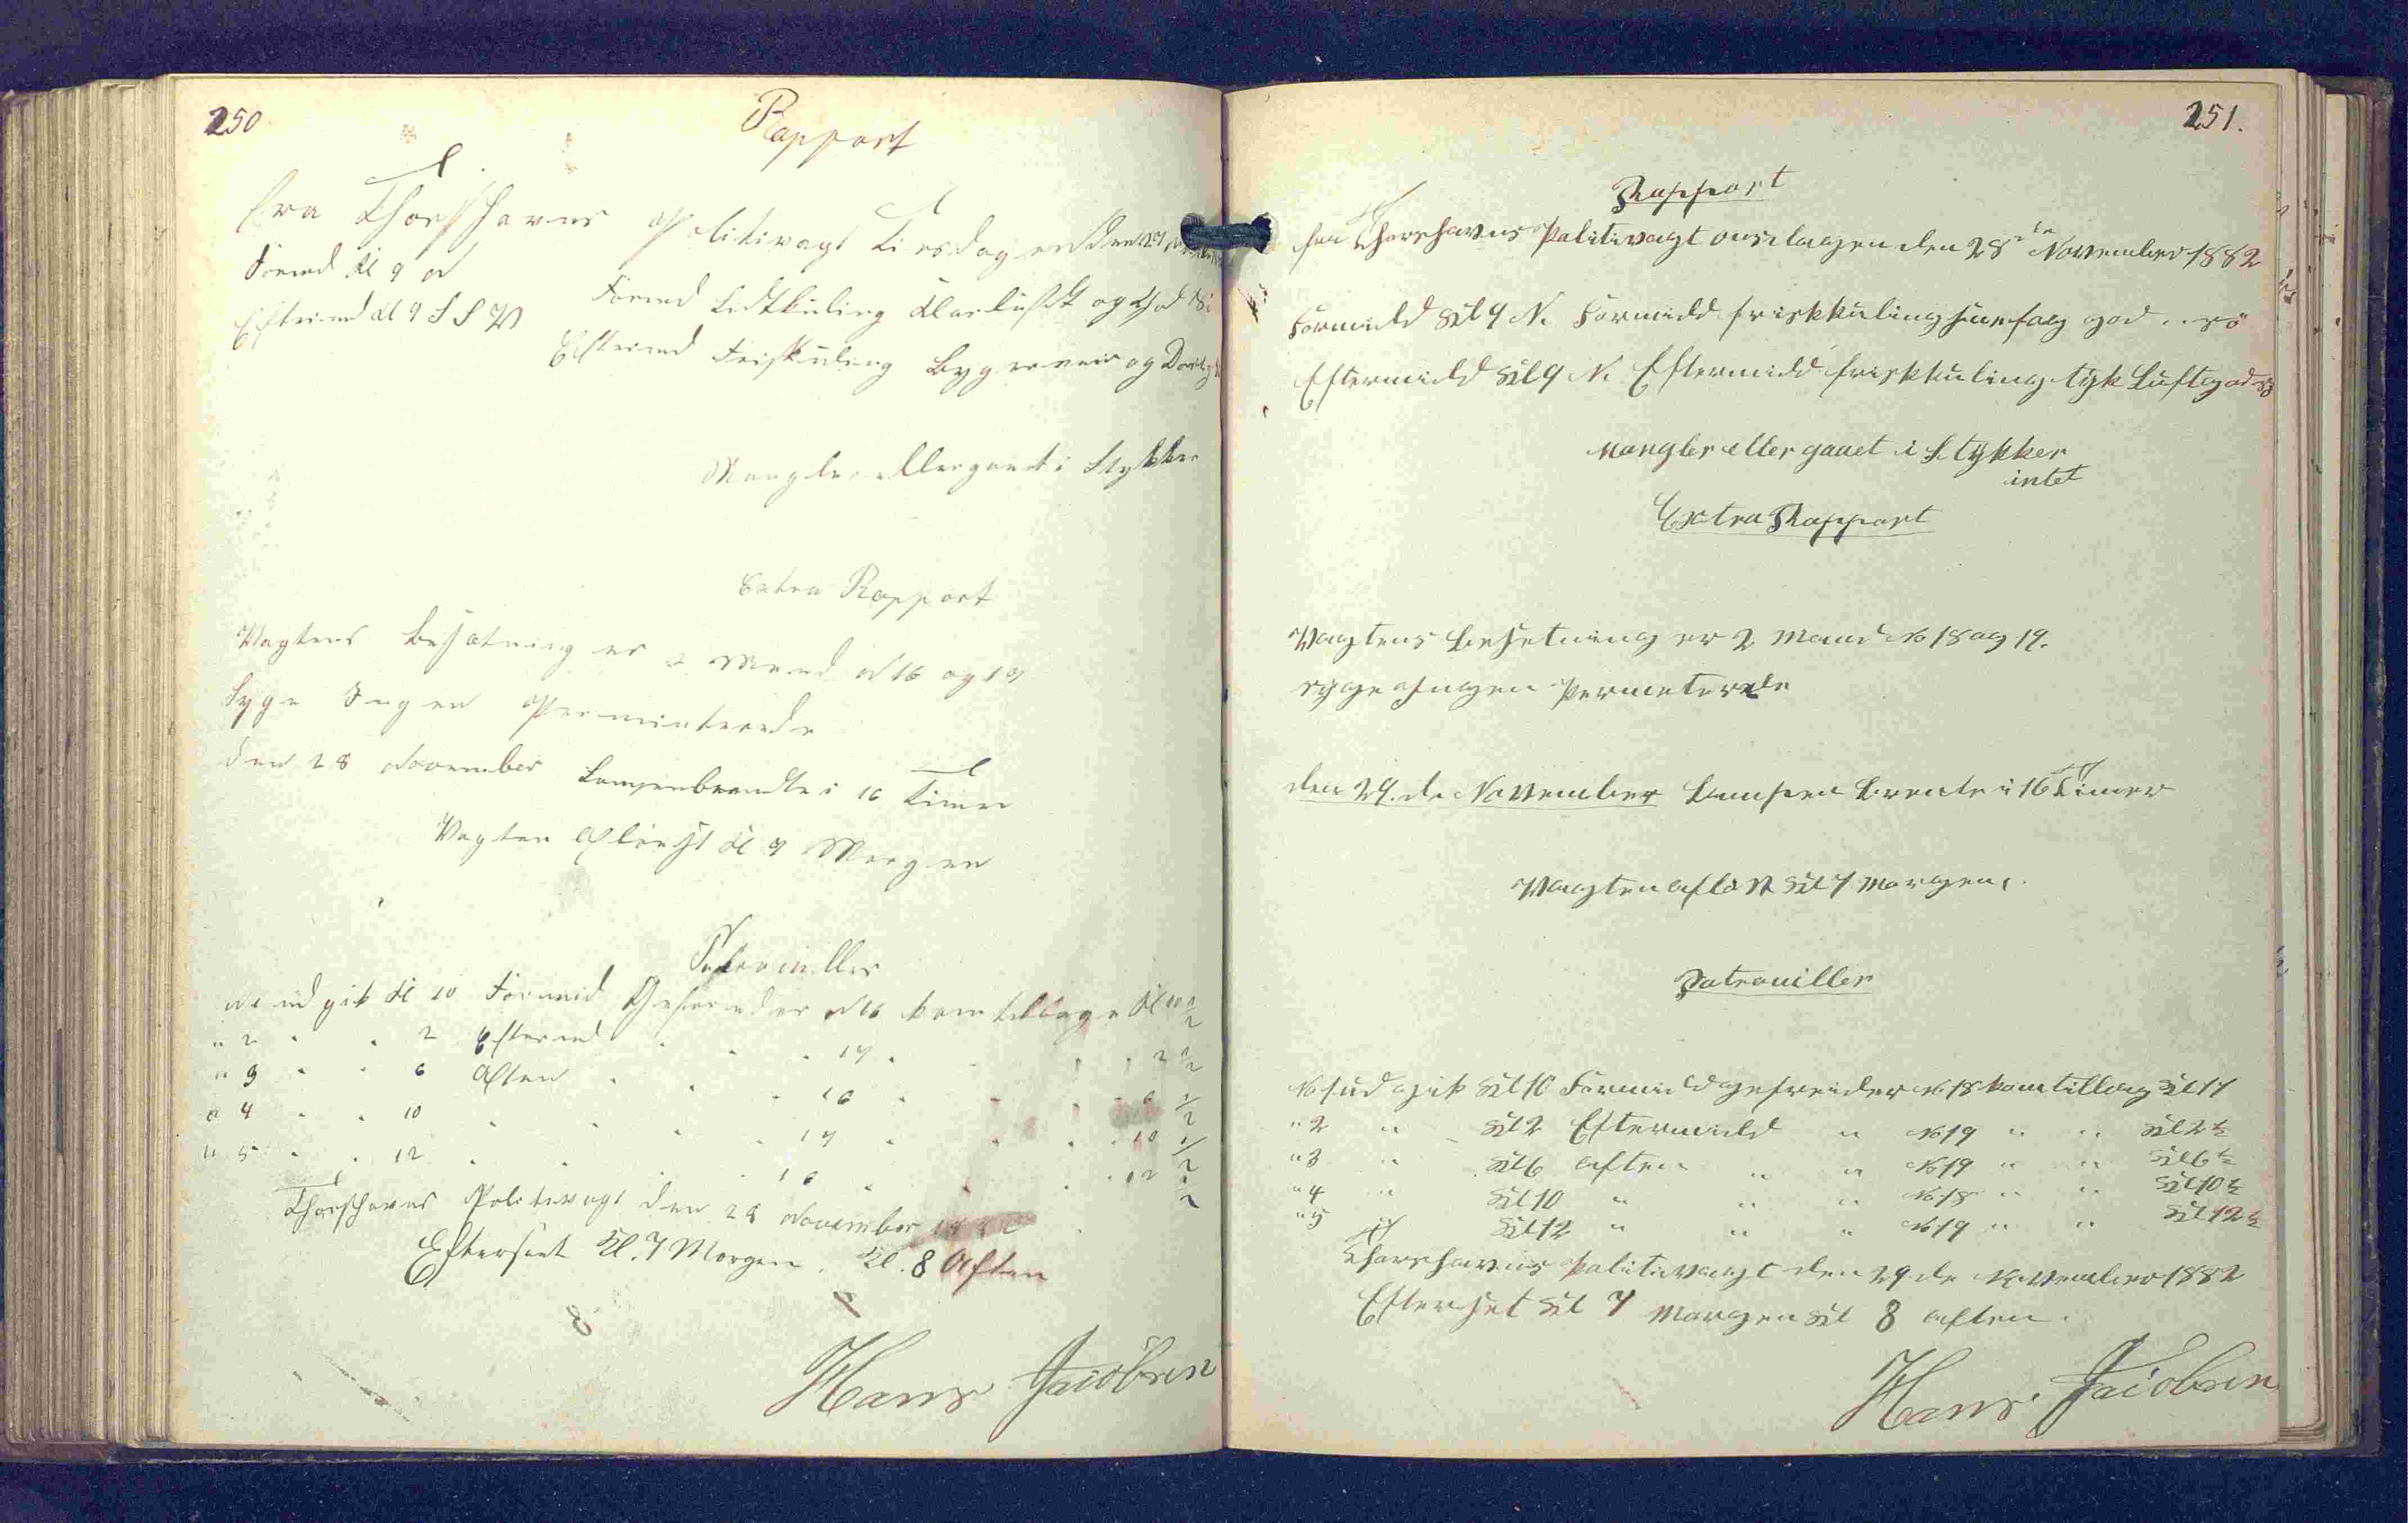 250
Rapport
fra Thorshavns Politivagt Tirsdagen den 27
Formd Kl 9 N
Formd Lidtkuling Klarluft og God
Eftermd Kl 9 S S V
Eftermd Friskuling Bygerveir og
Mangler eller gaaet i Stykker
Extra Rapport
Vagtens Besatning er 2 Mand N 16 og 17
Syge Ingen Permiterende
Den 28 November Lampen brendte i 16 Timer
Vagten Afløst Kl 9 Morgen
Patrouiller
N 1 ud gik Kl 10 Formid Gefreider N 16 kom tilbage Kl 10 1/2
" 2 " " 2 Eftermd " " " 17 " " " 2 1/2
" 3 " " 6 Aften " " " 16 " " " 6 1/2
" 4 " " 10 " " " " 17 " " " 10 1/2
" 5 " " 12 " " " " 16 " " " 12 1/2
Thorshavns Politivagt den 28 November 1882
Efterseet Kl. 7 Morgen. Kl. 8 Aften
Hans Jacobsen
251.
Rapport
fra Thorshavns Politivagt onsdagen den 28de November 1882
Formidd Kl 9 N. Formidd friskkuling god sø
Eftermidd Kl 9 N. Eftermidd friskkuling tyk Luft god sø
mangler eller gaaet i Stykker
intet
Extra Rapport
Vagtens besetning er 2 Mand No 18 og 19.
syge Ingen Permeterede
den 29. de November Lampen brente i 16 Timer
Vagten afløst Kl 7 Morgen.
Patrouiller
No 1 ud gik Kl 10 Formidd gefreider No 18 kom tilbag Kl 11
" 2 " Kl 2 Eftermidd " No 19 " " Kl 2 1/2
" 3 " Kl 6 aften " " No 19 " " Kl 6 1/2
" 4 " Kl 10 " " " No 18 " " Kl 10 1/2
" 5 Kl 12 " " " No 19 " " Kl 12 1/2
Thorshavns Politivagt den 29 de November 1882
Efterset Kl 7 Morgen Kl 8 aften.
Hans Jacobsen